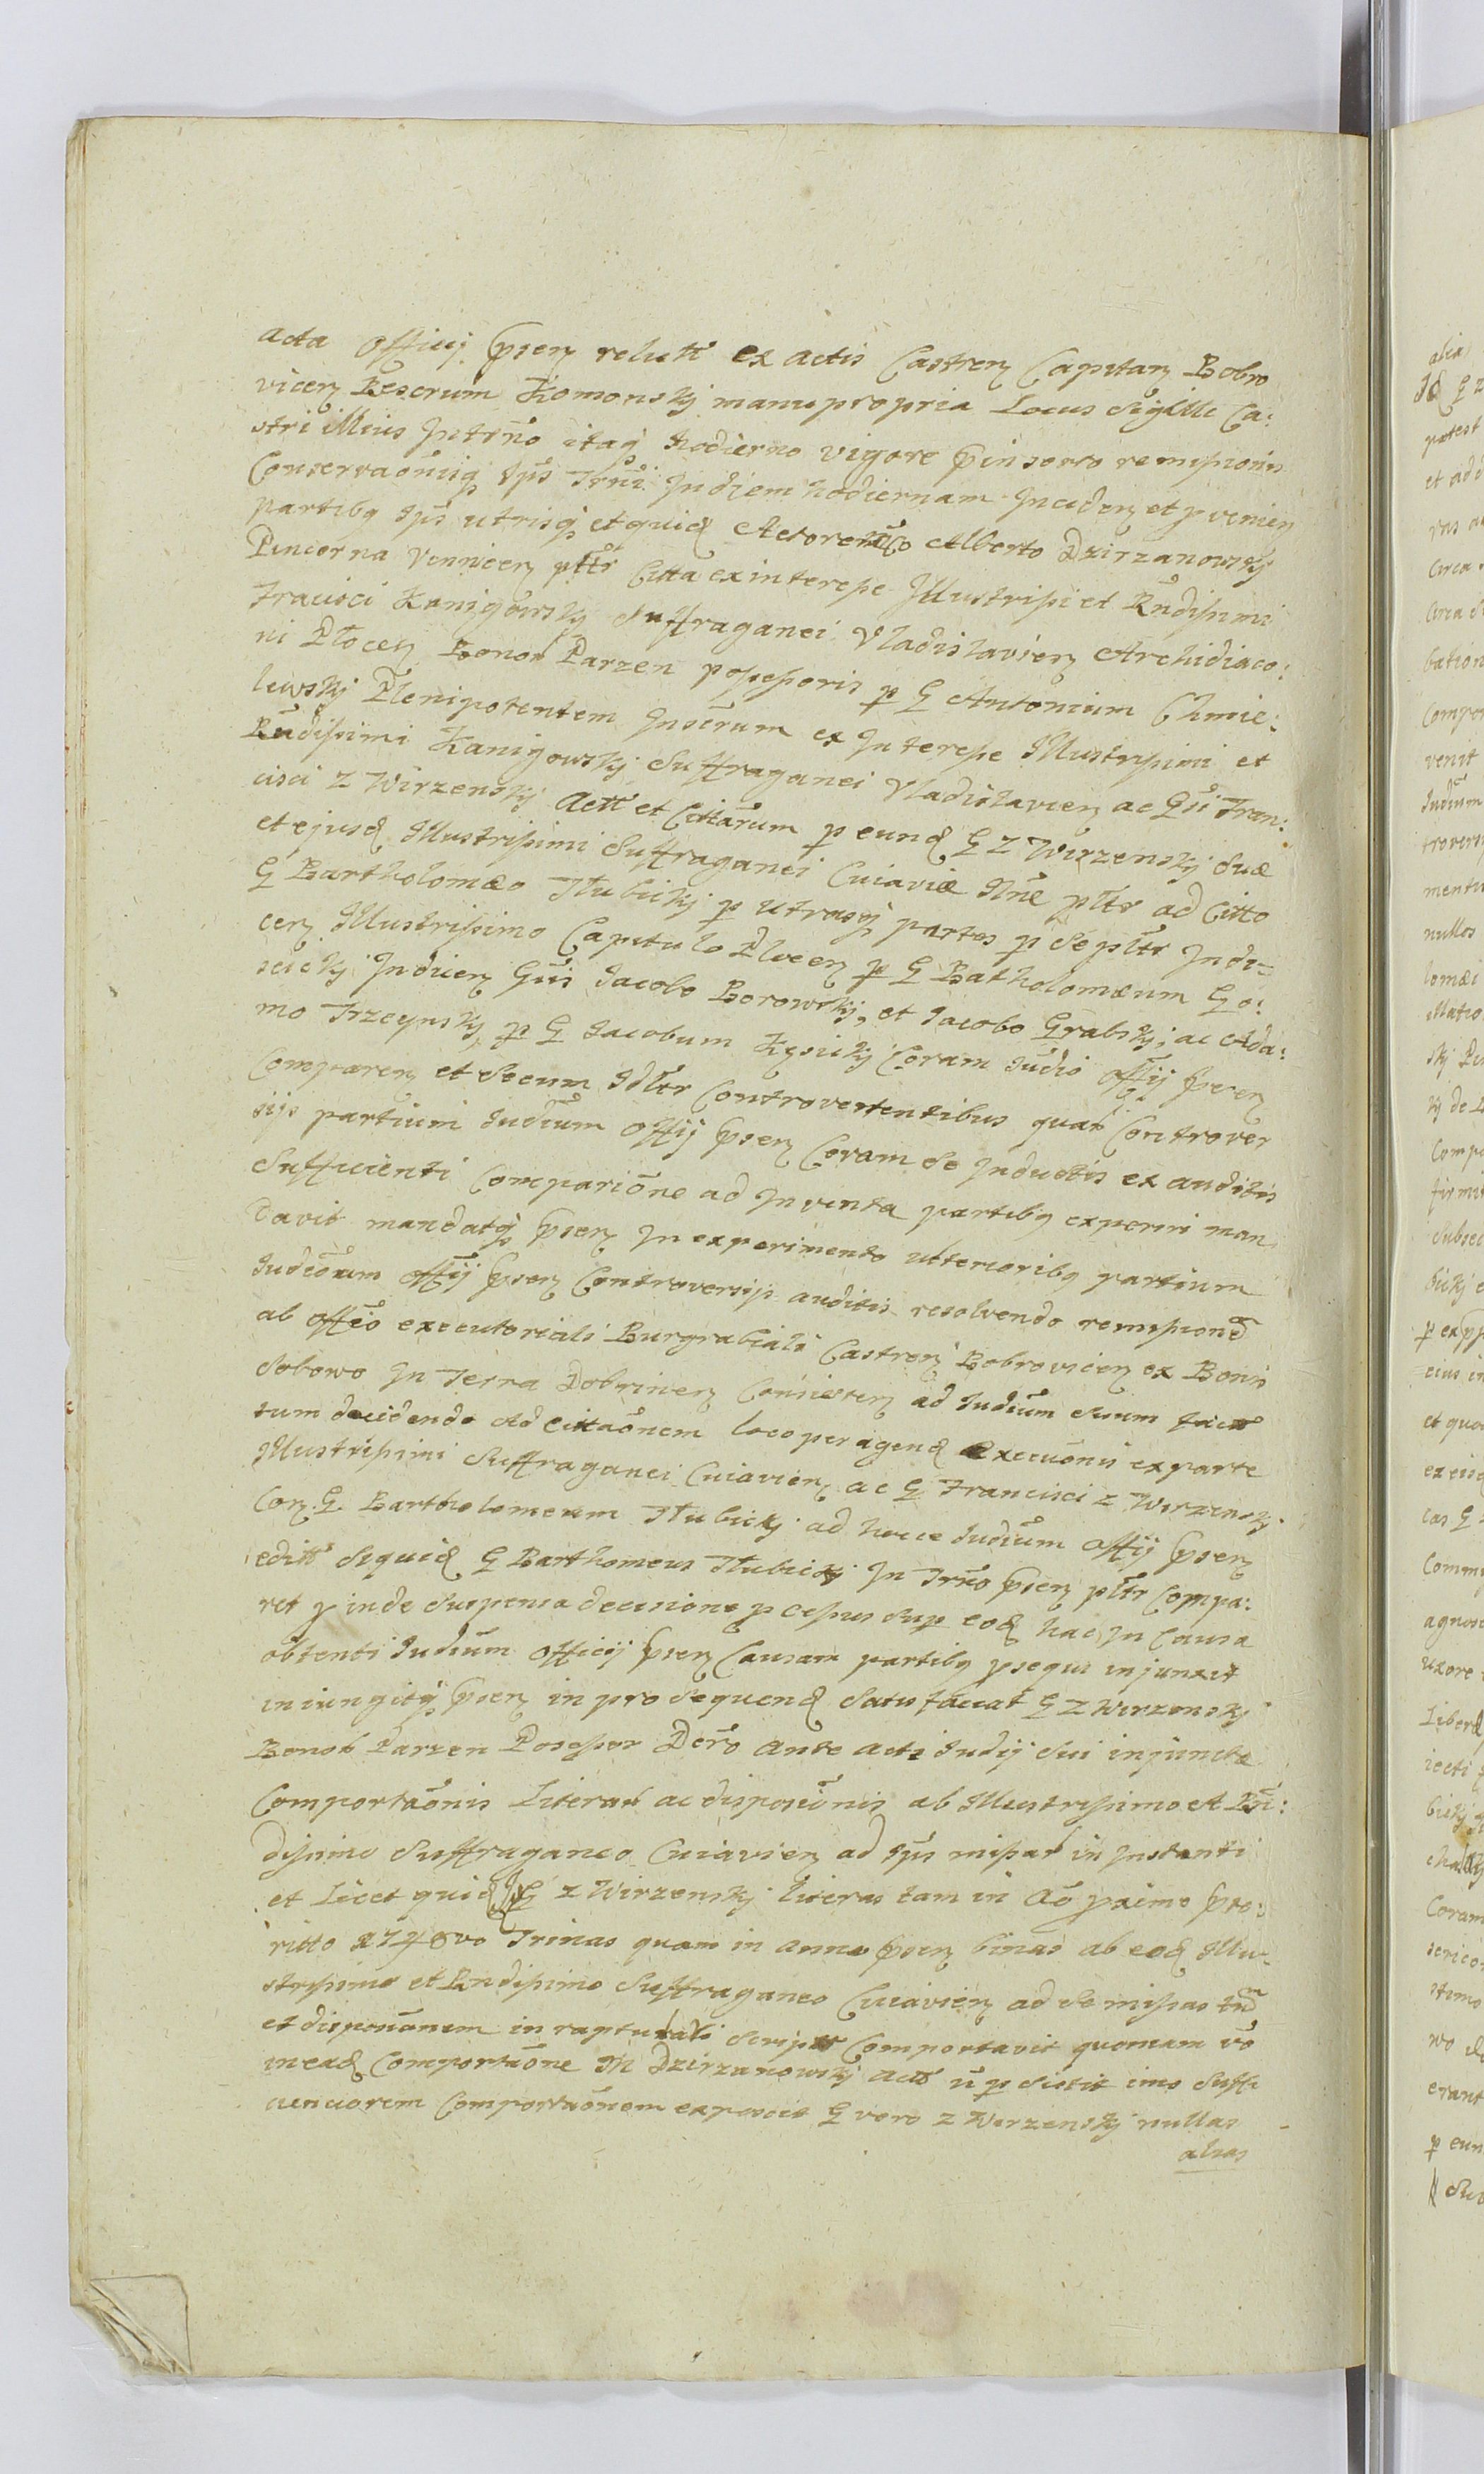 acta Officij psen relutt ex actis Castren Capitan Bobro
vicen Reserum Komonskj manu propria Locus Sigilli Ca:
stri illius In trno itaq hodierno vigore pinserto remissionis
Conservaonisq Ips Trni In diem hodiernam Inciden et pvenien
partibq Ips utrisq et quid Actorea Alberto Dzirzanowskj
Pincerna Vennicen pltr Citta ex interesse Illustrissi et Rndissimi
Fracisci Kanigowskj Suffraganei Vladislavien Archidiaco:
ni Plocen Bonor Parzen possessoris p G Antonium Chmie:
lewskj Plenipotentem Inscrum ex Interesse Illustrissimi et
Rndissimi Kanigowskj Suffraganei Vladislavien ac Gsi Fran:
cisci z Wirzenskj Actt et Cittarum p eund G Z Wirzenskj Suæ
et ejusd Illustrissimi Suffraganei Cuiaviæ Nne pltr ad Citto
G Bartholomæo Tłubickj p Utrasq partes p se pltr Indi-
cen Illustrissimo Capitulo Plocen p G Batholomæum Go:
scickj Indicen Gsis Jacobo Borowskj, et Jacobo Grabskj, ac Ada:
mo Trzcynskj, p G Jacobum Kęsickj Coram Judio Offij psen
Comparen et Secum Idltr Controvertentibus quar Controver
sijs partium Judium Offij psen Coram se Inductis ex auditis
Sufficienti Comparione ad Inventa partibq experiri man
davit mandatq psen In experimento ulterioribq partium
Judiorum Offij psen Controversijs auditis resolvendo remissione
ab Officio executoriali Burgrabiali Castren Bobrovicen ex Bonis
Sobowo In Terra Dobrinen Consisten ad Judium suum fact
tum decidendo Ad Cittaonem loco peragend Execuonis ex parte
Illustrissimi Suffraganei Cuiavien ac G Francisci z Wirzenskj
Con. G. Bartholomeum Tłubickj ad hocce Judium Offij psen
editt Siquid G Barthomeus Tłubickj In Trno psen pltr Compa:
ret p inde Suspensa decisione pcessus Sup eod hac In Causa
obtenti Judium Officij psen Causam partibq psequi injunxit
iniungitq psen in prosequend Satisfaciat G Z Wirzenskj
Bonor Parzen Possessor Dero ante acti Judij Sui injunctæ
Comportaonis Literar ac disposionis ab Illustrissimo et Rn:
dissimo Suffraganeo Cuiavien ad Ips missar in Instanti
et Licet quid G z Wirzenskj literas tam in Ao pximo præ:
ritto 1748vo Trinas quam in anno psen binas ab eod Illu-
strissimo et Rndissimo Suffraganeo Cuiavien ad se missas tnd
et disposionem in rapturali Scripto Comportavit quoniam vo
in ead Comportaone M Dzirzanowskj Actt n p sistit imo Suffi
cienciorem Comportaonem exposcit G vero z Wirzenskj nullas
alias